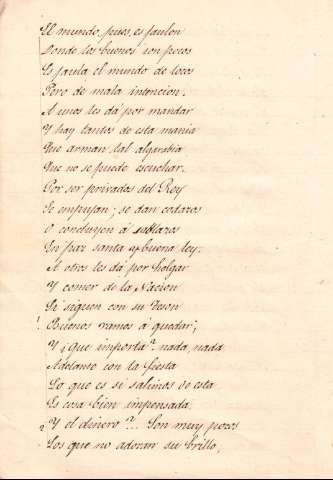 El mundo, pues, es jaulon
Donde los buenos son pocos
Es jaula el mundo de locos
Pero de mala intencion.
A unos les dá por mandar
Y hay tantos de esta mania
Que arman tal algarabia
Que no se puede escuchar.
Por ser privados del Rey
Se empujan; se dan codazos
O concluyen á sablazos
En paz santa y buena ley.
A otros les dá por holgar
Y comer de la Nacion
Si siguen con su teson
¡Buenos vamos á quedar!
Y ¿Que importa? nada, nada
Adelante con la fiesta
Lo que es si salimos de esta
Es cosa bien impensada.
¿Y el dinero?.. Son muy pocos
Los que no adoran su brillo,